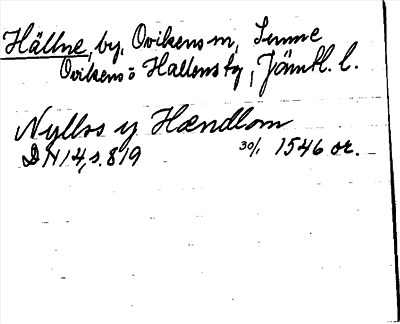 Hällne, by, Ovikens m, Sunne
Ovikens o Hallens tg, Jämtl. l.
Nyllos y Hændlom
DN 14, s. 819 30/1 1546 or.